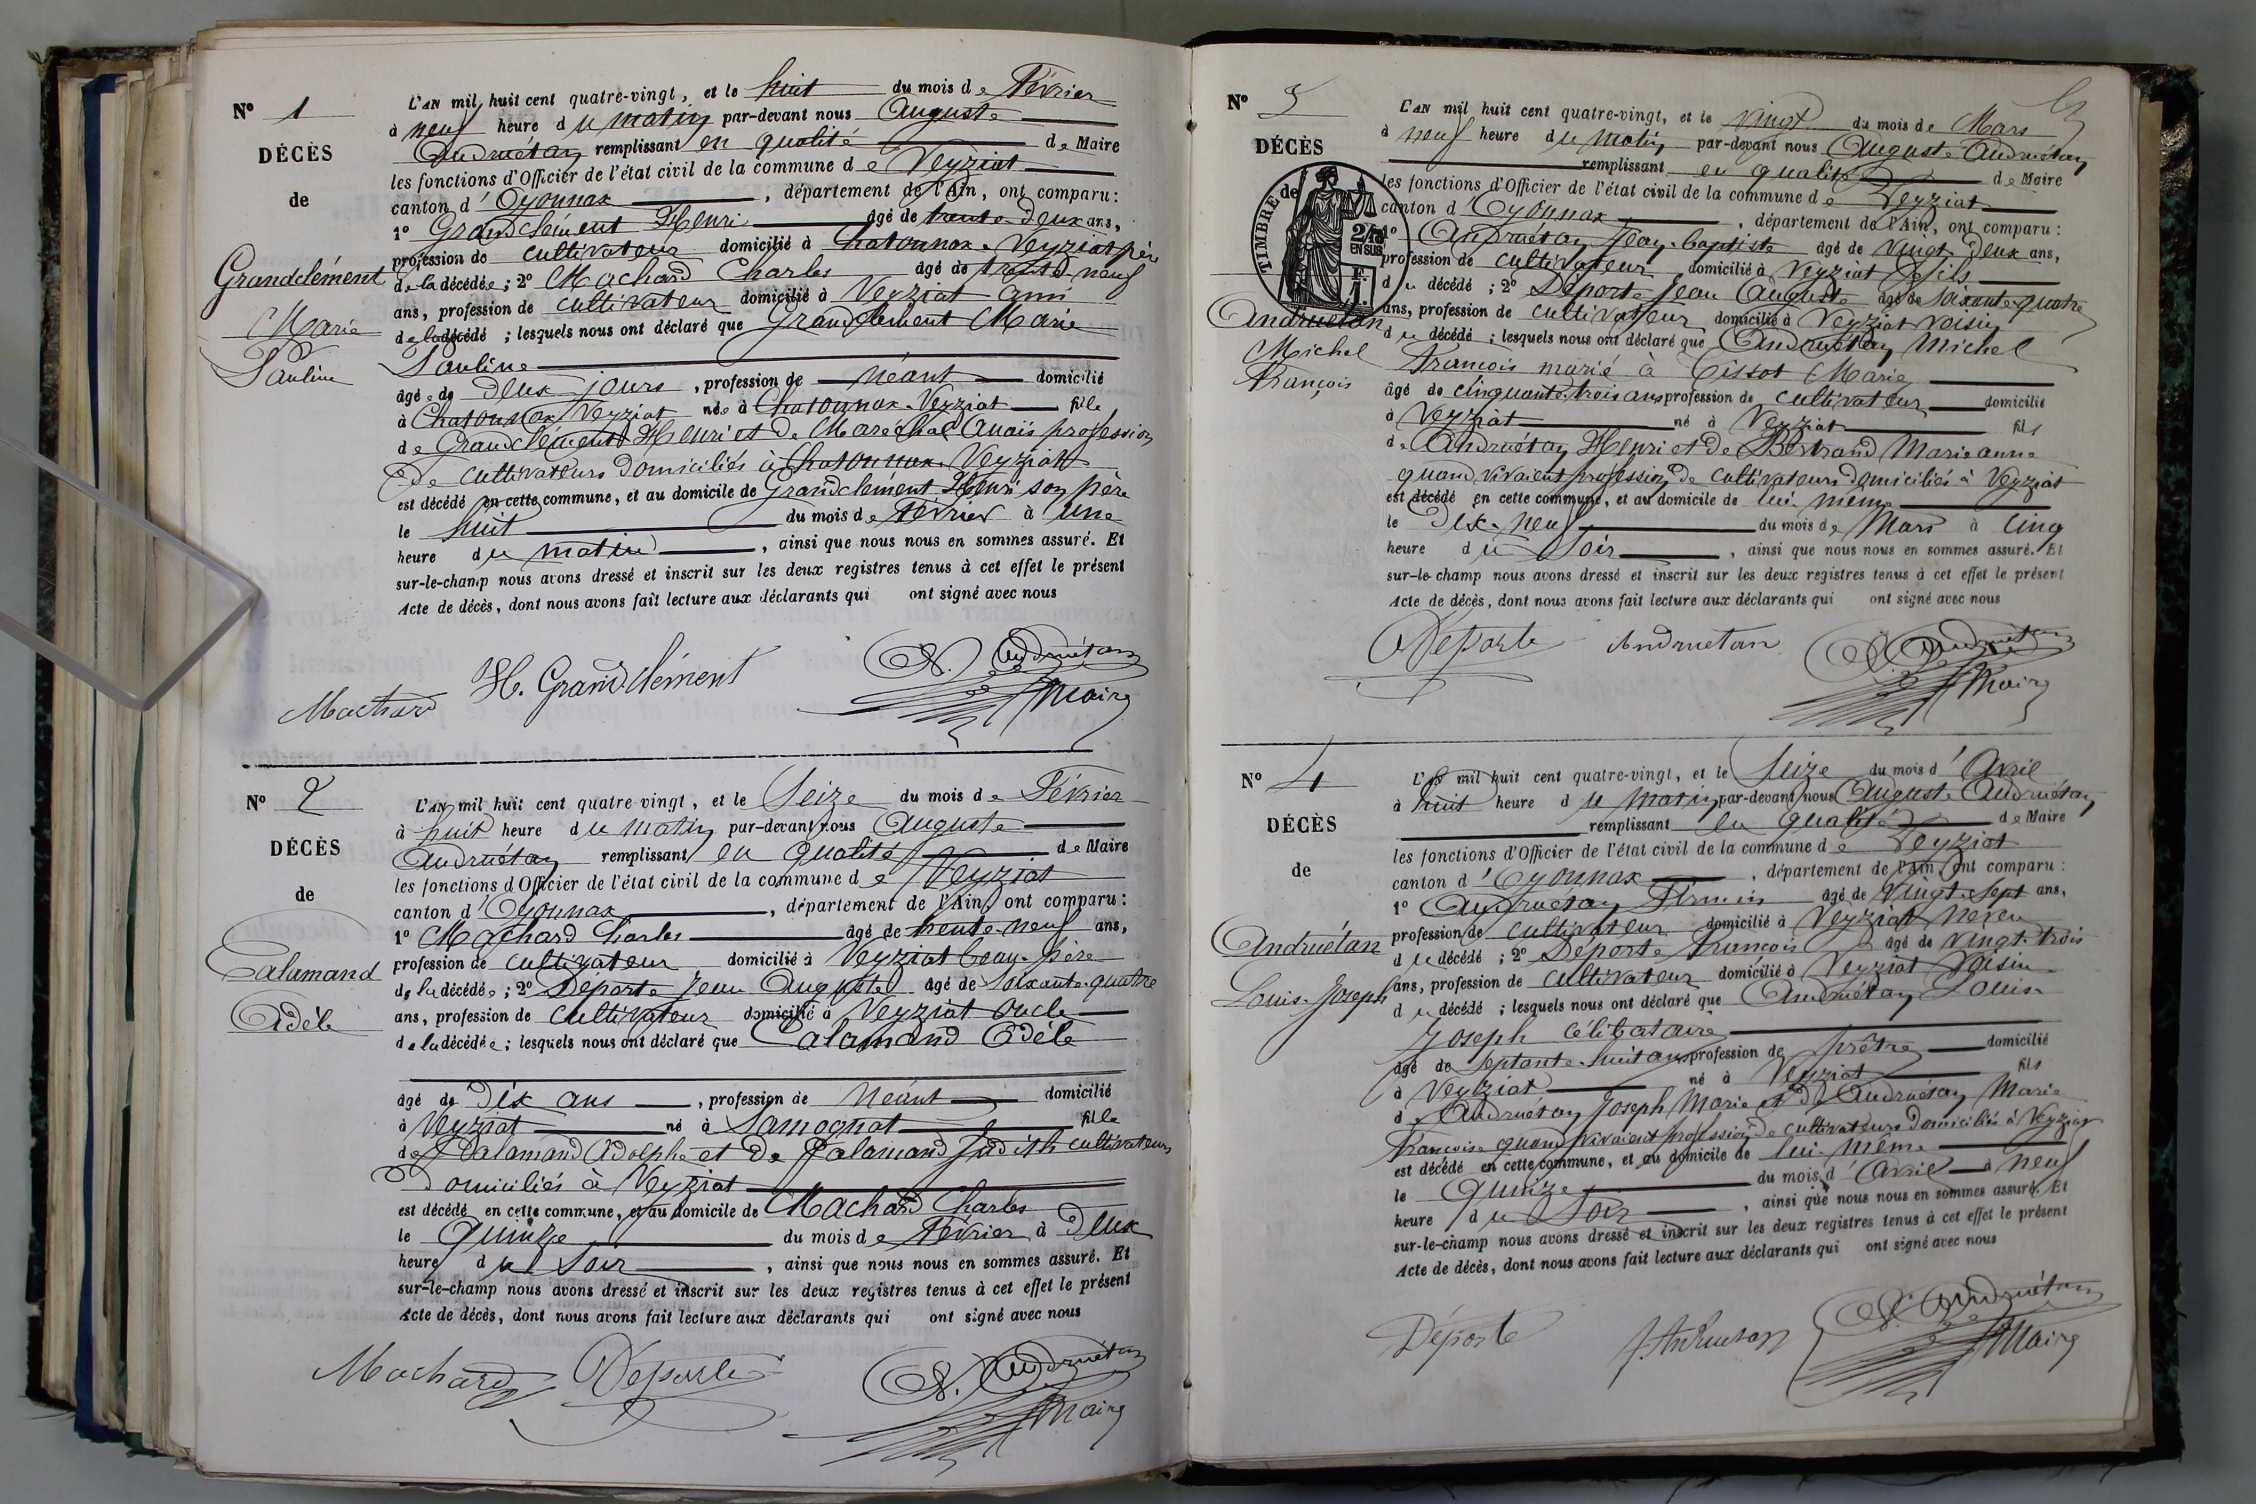 N° 1
DÉCÈS
de
Grandclément
Marie
Pauline
L'AN mil huit cent quatre-vingt, et le huit du mois de Février
à neuf heure du matin par-devant nous Auguste
Andruétan remplissant en qualité de Maire
les fonctions d'Officier de l'état civil de la commune de Veyziat
canton d'Oyonnax, département de l'Ain, ont comparu :
1° Grandclément Henri âgé de trente deux ans,
profession de cultivateur domicilié à Chatonnax Veyziat père
de la décédée ; 2° Machard Charles âgé de trente neuf
ans, profession de cultivateur domicilié à Veyziat ami
de la décédé ; lesquels nous ont déclaré que Grandclément Marie
Pauline
âgée de deux jours, profession de néant domicilié
à Chatonnax Veyziat née à Chatonnax Veyziat fille
de Grandclément Henri et de Maréchal Anaïs profession
de cultivateurs domiciliés à Chatonnax Veyziat
est décédé en cette commune, et au domicile de Grandclément Henri son père
le huit du mois de Février à une
heure du matin, ainsi que nous nous en sommes assuré. Et
sur-le-champ nous avons dressé et inscrit sur les deux registres tenus à cet effet le présent
Acte de décès, dont nous avons fait lecture aux déclarants qui ont signé avec nous
Machard H. Grandclément A. Andruétan
Maire
N° 2
DÉCÈS
de
Calamand
Adèle
L'AN mil huit cent quatre-vingt, et le Seize du mois de Février
à huit heure du matin par-devant nous Auguste
Andruétan remplissant en qualité de Maire
les fonctions d'Officier de l'état civil de la commune de Veyziat
canton d'Oyonnax, département de l'Ain, ont comparu :
1° Machard Charles âgé de trente-neuf ans,
profession de cultivateur domicilié à Veyziat beau-père
de la décédée ; 2° Déporte Jean Auguste âgé de soixante-quatre
ans, profession de cultivateur domicilié à Veyziat oncle
de la décédée ; lesquels nous ont déclaré que Calamand Adèle
âgé de dix ans, profession de Néant domicilié
à Veyziat né à Samognat fille
de Calamand Adolphe et de Calamand Judith cultivateurs
domiciliés à Veyziat
est décédé en cette commune, et au domicile de Machard Charles
le quinze du mois de Février à deux
heure du soir, ainsi que nous nous en sommes assuré. Et
sur-le-champ nous avons dressé et inscrit sur les deux registres tenus à cet effet le présent
Acte de décès, dont nous avons fait lecture aux déclarants qui ont signé avec nous
Machard Déporte A. Andruétan
Maire
N° 3
DÉCÈS
de
TIMBRE
2/10
EN SUS
Andruétan
Michel
François
L'AN mil huit cent quatre-vingt, et le vingt du mois de Mars
à neuf heure du matin par-devant nous Auguste Andruétan
remplissant en qualité de Maire
les fonctions d'Officier de l'état civil de la commune de Veyziat
canton d'Oyonnax, département de l'Ain, ont comparu :
1° Andruétan Jean-Baptiste âgé de vingt deux ans,
profession de cultivateur domicilié à Veyziat fils
du décédé ; 2° Déporte Jean Auguste âgé de soixante quatre
ans, profession de cultivateur domicilié à Veyziat voisin
du décédé ; lesquels nous ont déclaré que Andruétan Michel
François marié à Tissot Marie
âgé de cinquante-trois ans profession de cultivateur domicilié
à Veyziat né à Veyziat fils
de Andruétan Henri et de Bertrand Marieanne
quand vivaient profession de cultivateurs domiciliés à Veyziat
est décédé en cette commune, et au domicile de lui même
le Dix-neuf du mois de Mars à cinq
heure du Soir, ainsi que nous nous en sommes assuré. Et
sur-le-champ nous avons dressé et inscrit sur les deux registres tenus à cet effet le présent
Acte de décès, dont nous avons fait lecture aux déclarants qui ont signé avec nous
Déporte Andruetan A. Andruétan
Maire
N° 4
DÉCÈS
de
Andruétan
Louis-Joseph
L'AN mil huit cent quatre-vingt, et le Seize du mois d'Avril
à huit heure du matin par-devant nous Auguste Andruétan
remplissant en qualité de Maire
les fonctions d'Officier de l'état civil de la commune de Veyziat
canton d'Oyonnax, département de l'Ain, ont comparu :
1° Andruétan Firmin âgé de vingt-sept ans,
profession de cultivateur domicilié à Veyziat neveu
du décédé ; 2° Déporte François âgé de vingt-trois
ans, profession de cultivateur domicilié à Veyziat voisin
du décédé ; lesquels nous ont déclaré que Andruétan Louis
Joseph célibataire
âgé de septante-huit ans profession de prêtre domicilié
à Veyziat né à Veyziat fils
de Andruétan Joseph Marie et de Andruétan Marie
Françoise quand vivaient profession de cultivateurs domiciliés à Veyziat
est décédé en cette commune, et au domicile de lui-même
le Quinze du mois d'Avril à neuf
heure du Soir, ainsi que nous nous en sommes assuré. Et
sur-le-champ nous avons dressé et inscrit sur les deux registres tenus à cet effet le présent
Acte de décès, dont nous avons fait lecture aux déclarants qui ont signé avec nous
Déporte A. Andruétan
Maire